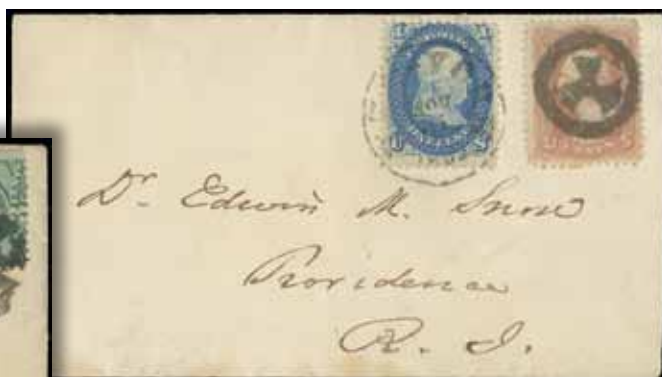 Dr. Edwin M. Snow
Providence
R. I.